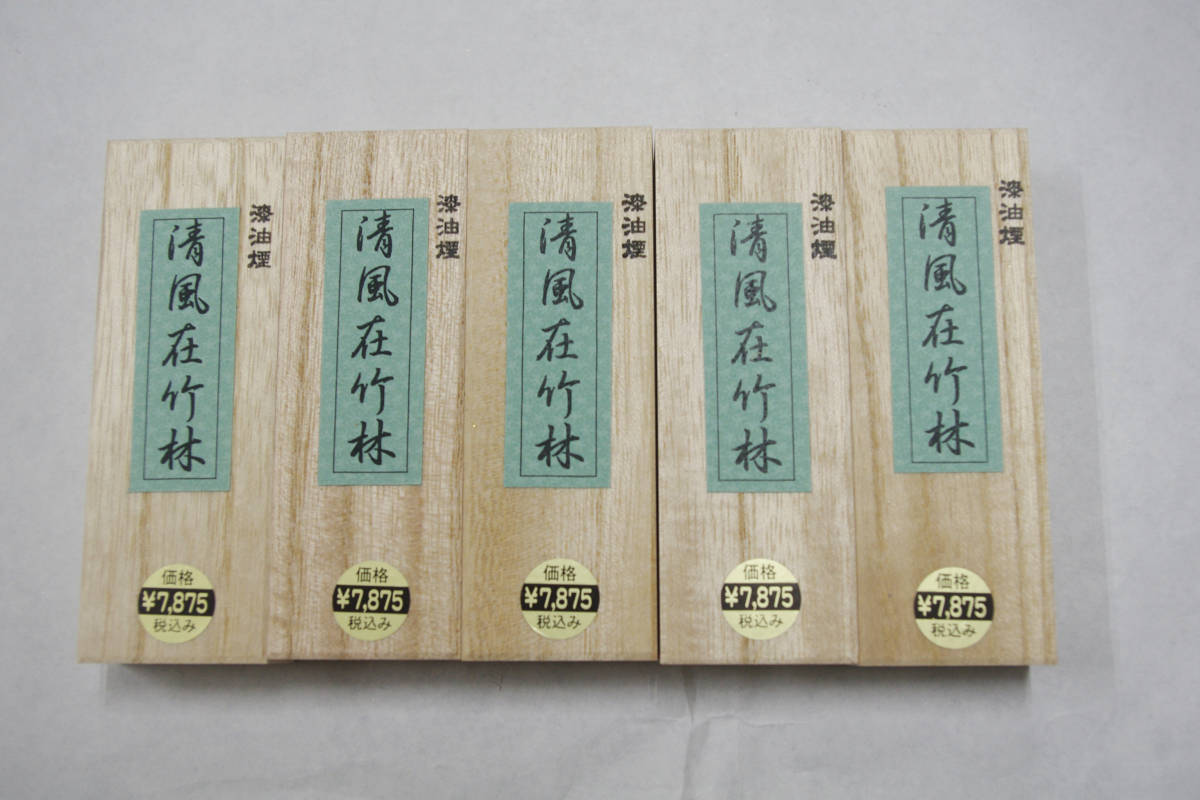 漆油煙
清風在竹林
価格
¥7,875
税込み
漆油煙
清風在竹林
価格
¥7,875
税込み
漆油煙
清風在竹林
価格
¥7,875
税込み
漆油煙
清風在竹林
価格
¥7,875
税込み
漆油煙
清風在竹林
価格
¥7,875
税込み